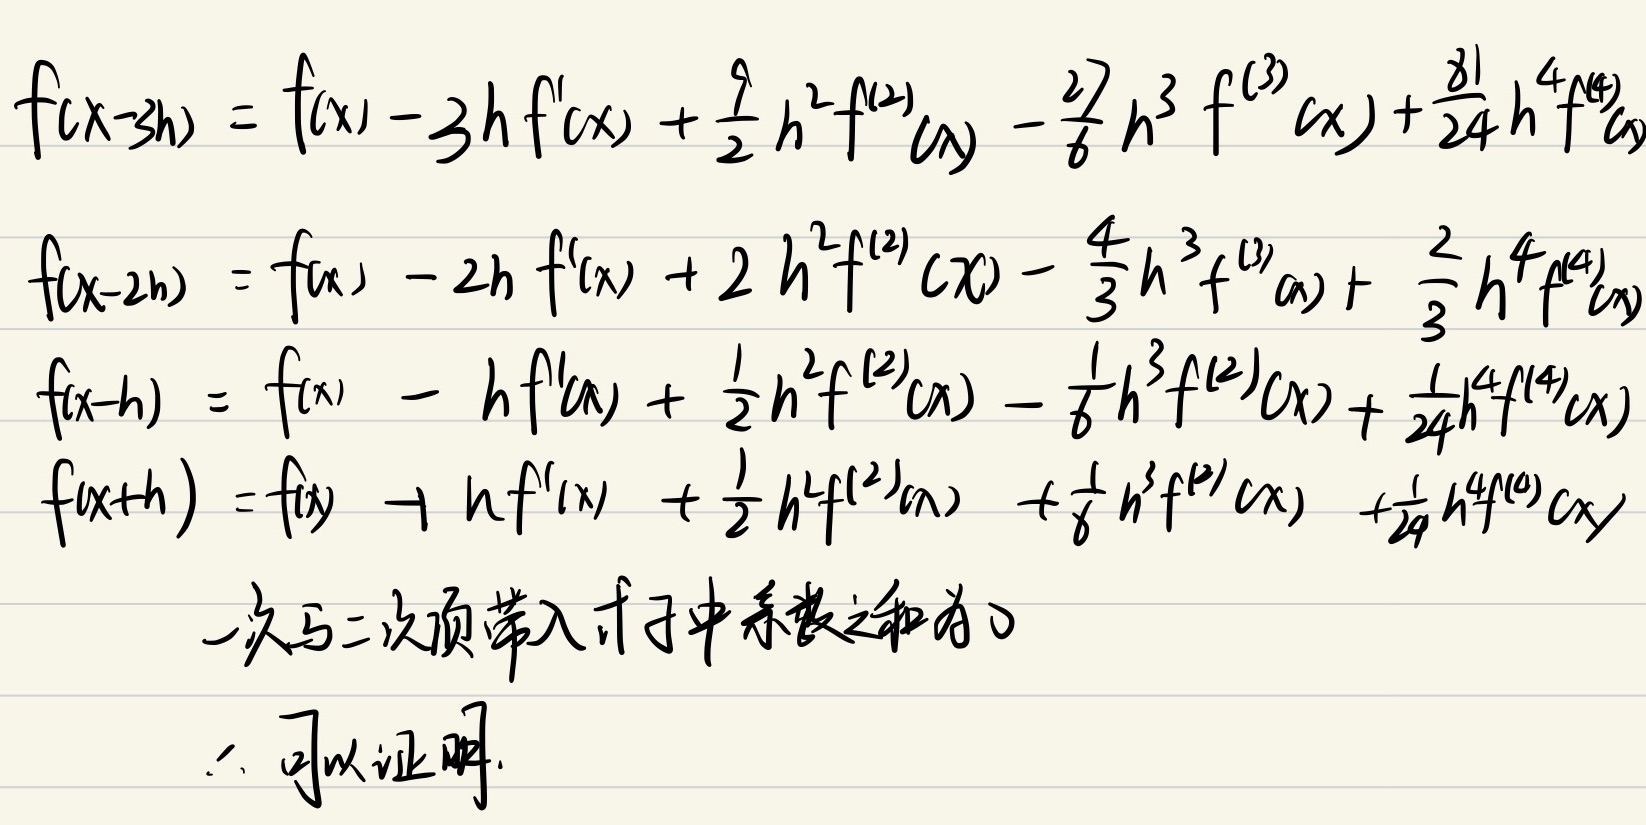 f(x-3h) = f(x) - 3hf'(x) + 9/2 h²f⁽²⁾(x) - 27/6 h³ f⁽³⁾(x) + 81/24 h⁴f⁽⁴⁾(x)
f(x-2h) = f(x) - 2h f'(x) + 2 h²f⁽²⁾(x) - 4/3 h³f⁽³⁾(x) + 2/3 h⁴f⁽⁴⁾(x)
f(x-h) = f(x) - hf'(x) + 1/2 h²f⁽²⁾(x) - 1/6 h³f⁽²⁾(x) + 1/24 h⁴f⁽⁴⁾(x)
f(x+h) = f(x) + hf'(x) + 1/2 h²f⁽²⁾(x) + 1/6 h³f⁽³⁾(x) + 1/24 h⁴f⁽⁴⁾(x)
一次与二次项带入 中系数之和为0
∴ 可以证明.